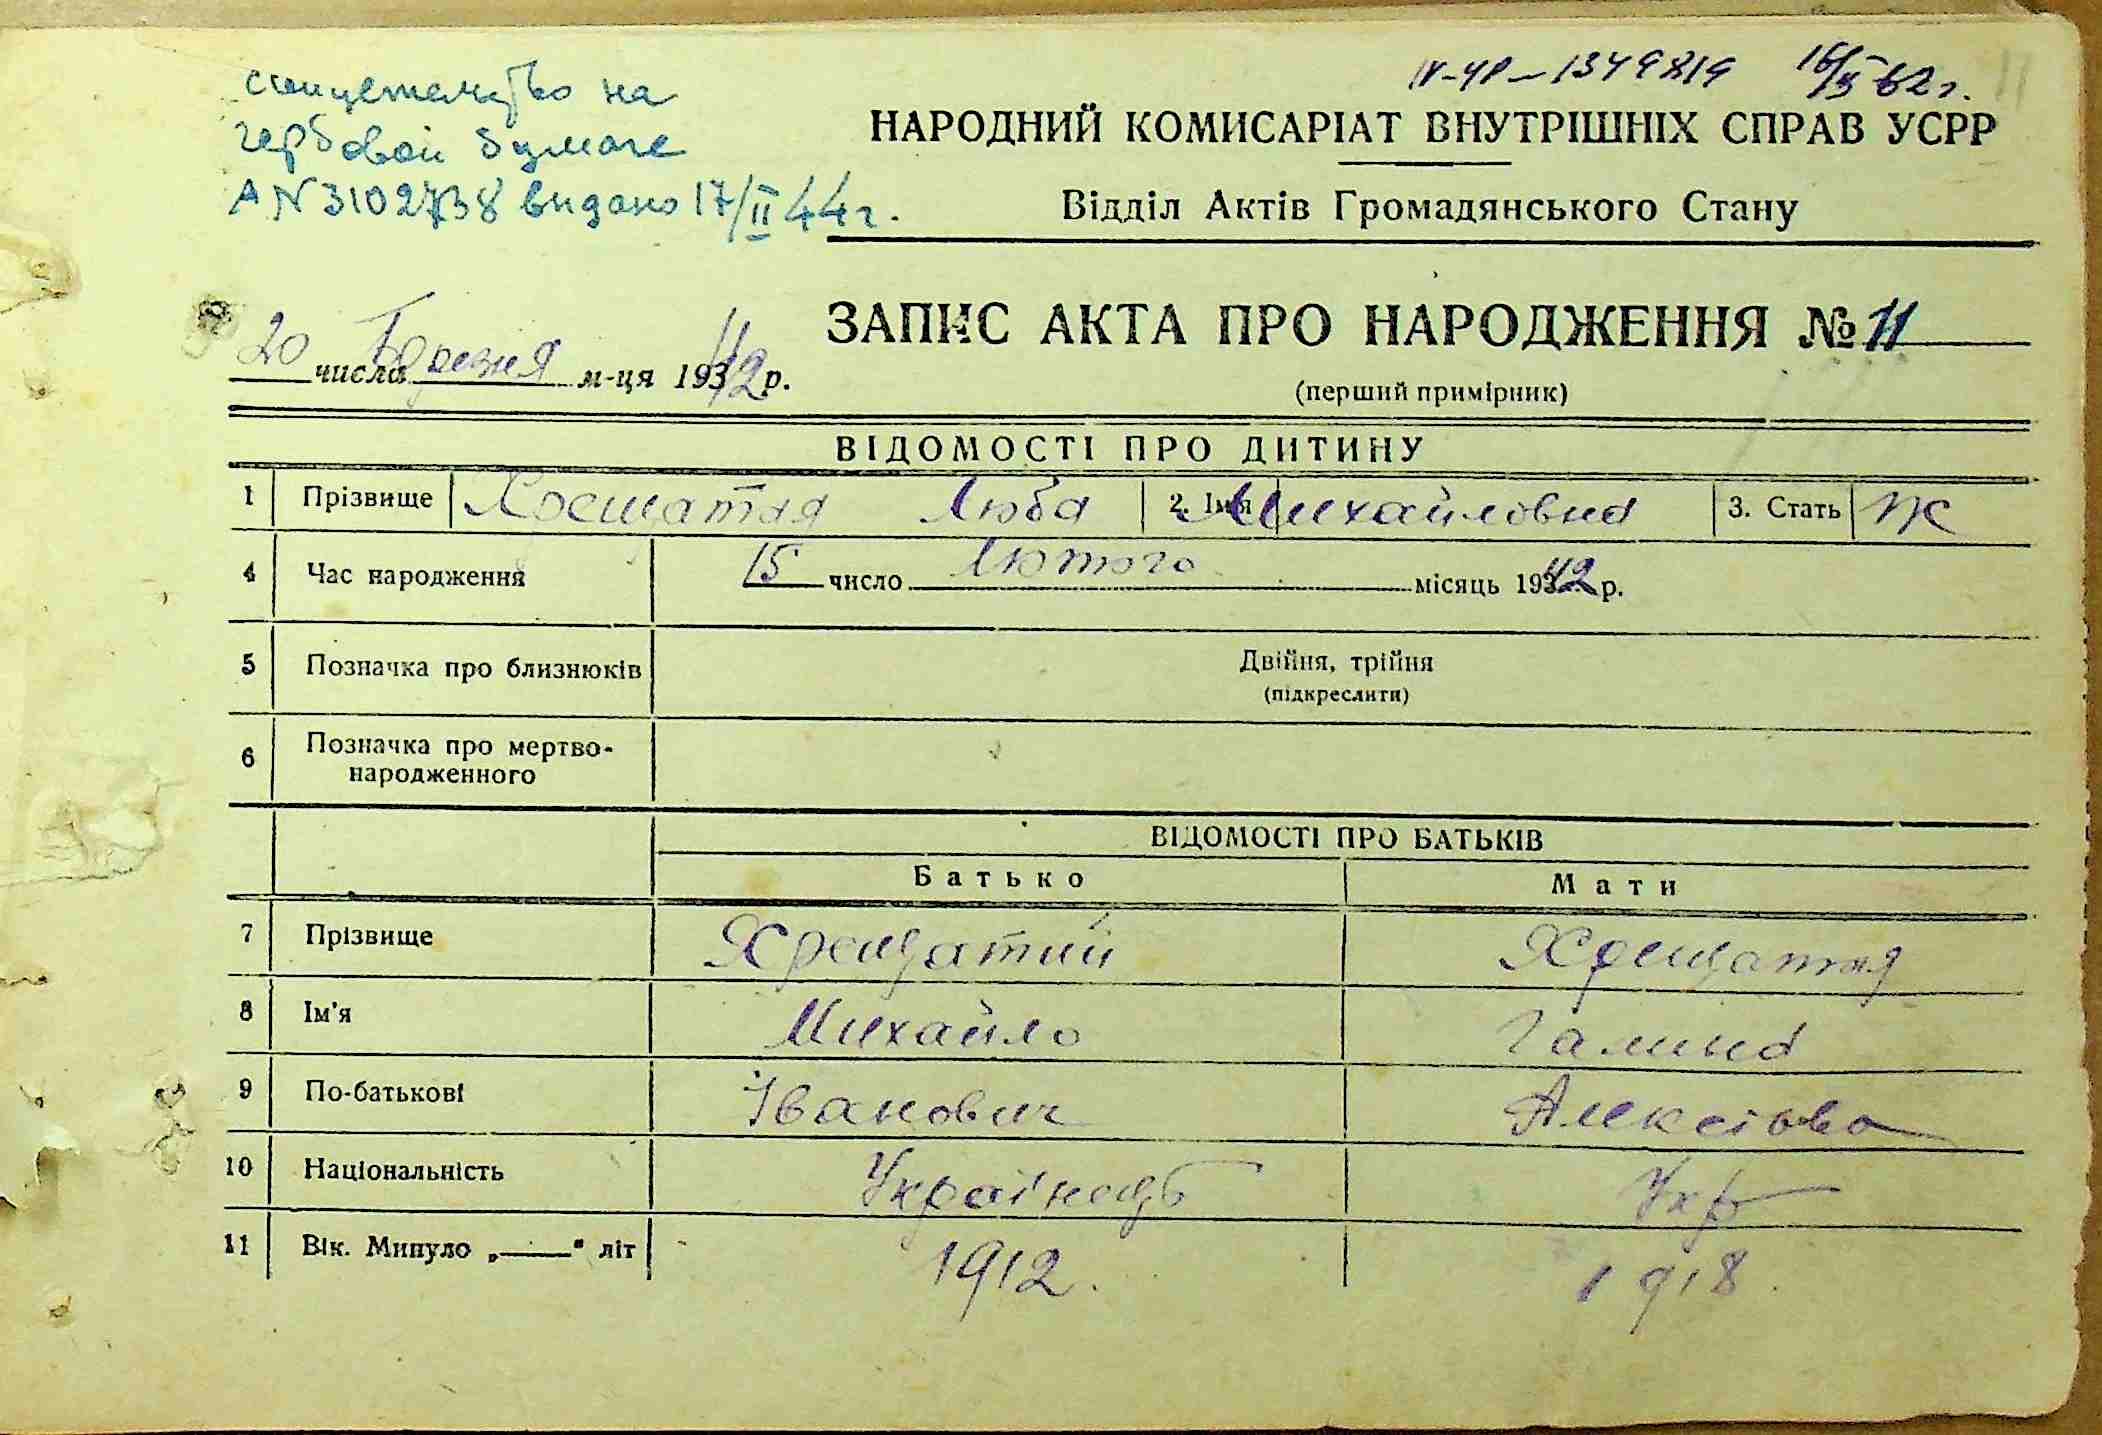 IV-УР-1349819 16/X 62г. 11
свидетельство на
гербовой бумаге
А N 3102738 видано 17/II 44г.
НАРОДНИЙ КОМИСАРІАТ ВНУТРІШНІХ СПРАВ УСРР
Відділ Актів Громадянського Стану
ЗАПИС АКТА ПРО НАРОДЖЕННЯ № 11
20 числа Березня м-ця 1942 р.
(перший примірник)
ВІДОМОСТІ ПРО ДИТИНУ
1 Прізвище Хрещатая Люба 2. Ім'я Михайловна 3. Стать Ж
4 Час народження 15 число Лютого місяць 1942 р.
5 Позначка про близнюків Двійня, трійня
(підкреслити)
6 Позначка про мертво-
народженного
ВІДОМОСТІ ПРО БАТЬКІВ
Батько Мати
7 Прізвище Хрещатий Хрещатая
8 Ім'я Михайло Галина
9 По-батькові Іванович Алексієва
10 Національність Українець Укр
11 Вік. Минуло „——" літ 1912. 1918.